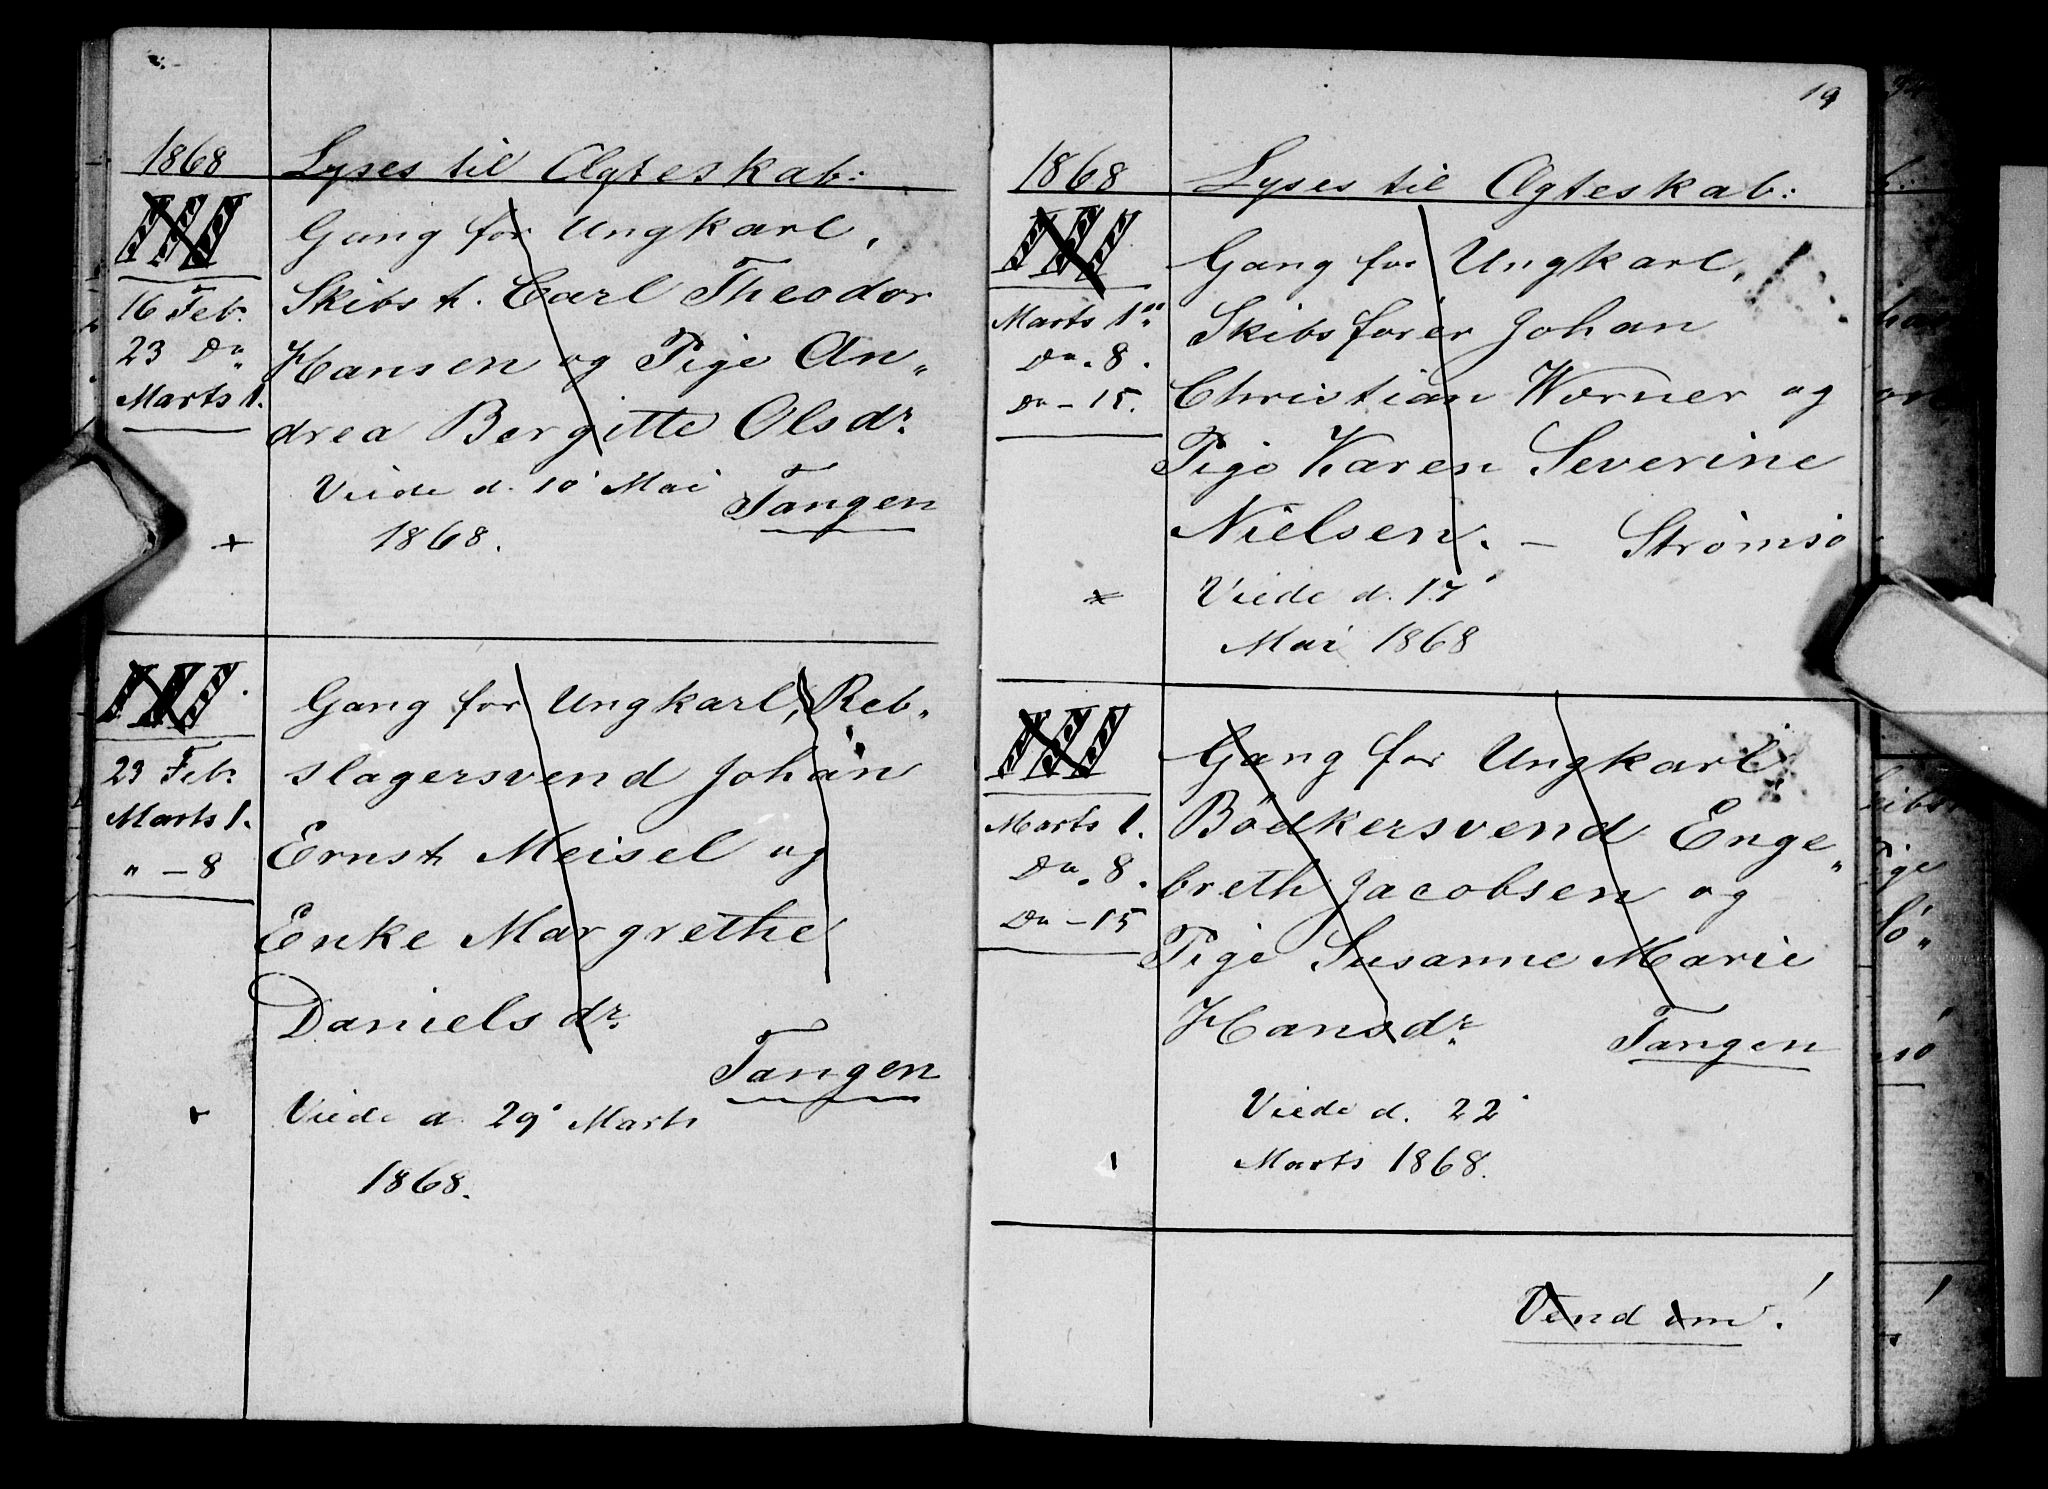 1868 Lyses til Ægteskab:
III Gang for Ungkarl,
16 Feb. Skibst. Carl Theodor
23 Do Hansen og Pige An„
Marts 1. drea Bergitte Olsdr.
Viede d. 10' Mai Tangen
+ 1868.
III Gang for Ungkarl, Reb„
23 Feb. slagersvend Johan
Marts 1. Ernst Meisel og
" – 8 Enke Margrethe
Danielsdr.
Tangen
+ Viede d. 29' Marts
1868.
19
1868 Lyses til Ægteskab:
III Gang for Ungkarl,
Marts 1" Skibsfører Johan
Do. 8. Christian Wørner og
Do – 15. Pige Karen Severine
Nielsen. – Strømsø
+ Viede d. 17'
Mai 1868
III Gang for Ungkarl,
Marts 1. Bødkersvend Enge„
Do. 8. breth Jacobsen og
Do – 15 Pige Susanne Marie
Hansdr. Tangen
Viede d. 22'
Marts 1868.
Vend om!